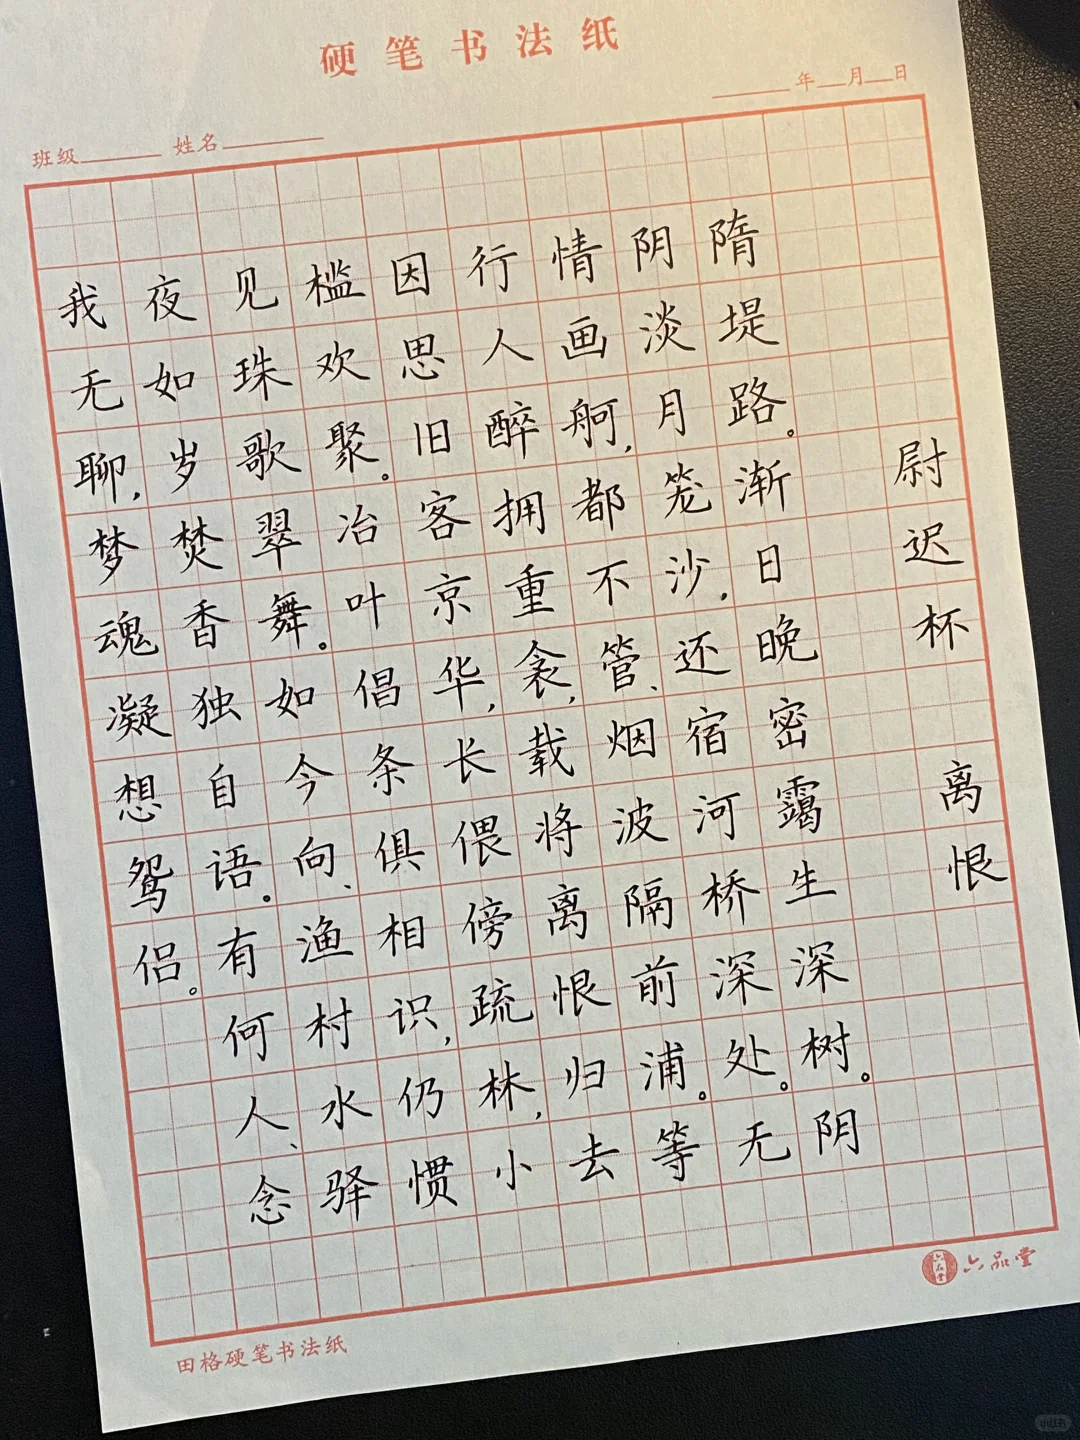 硬笔书法纸
年 月 日
班级 姓名
尉迟杯 离恨
隋堤路。渐日晚密霭生深树。阴
阴淡月笼沙,还宿河桥深处。无
情画舸,都不管、烟波隔前浦。等
行人醉拥重衾,载将离恨归去
因思旧客京华,长偎傍疏林,小
槛欢聚。冶叶倡条俱相识,仍惯
见珠歌翠舞。如今向、渔村水驿
夜如岁焚香独自语。有何人、念
我无聊,梦魂凝想鸳侣。
六品堂
六品堂
田格硬笔书法纸
小红书